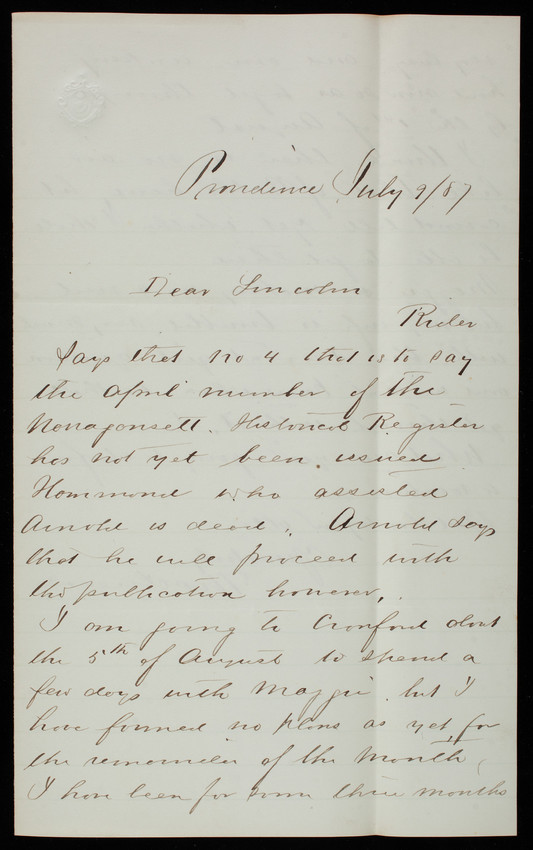 Providence July 9/87
Dear Lincoln
Rider
Says that no 4 that is to say
the april number of the
Narragansett. Historical Register
has not yet been issued
Hammond who assisted
Arnold is dead. Arnold says
that he will proceed with
the publication however.
I am going to Cranford about
the 5th of August to spend a
few days with Maggie but I
have formed no plans as yet for
the remainder of the month.
I have been for some three months